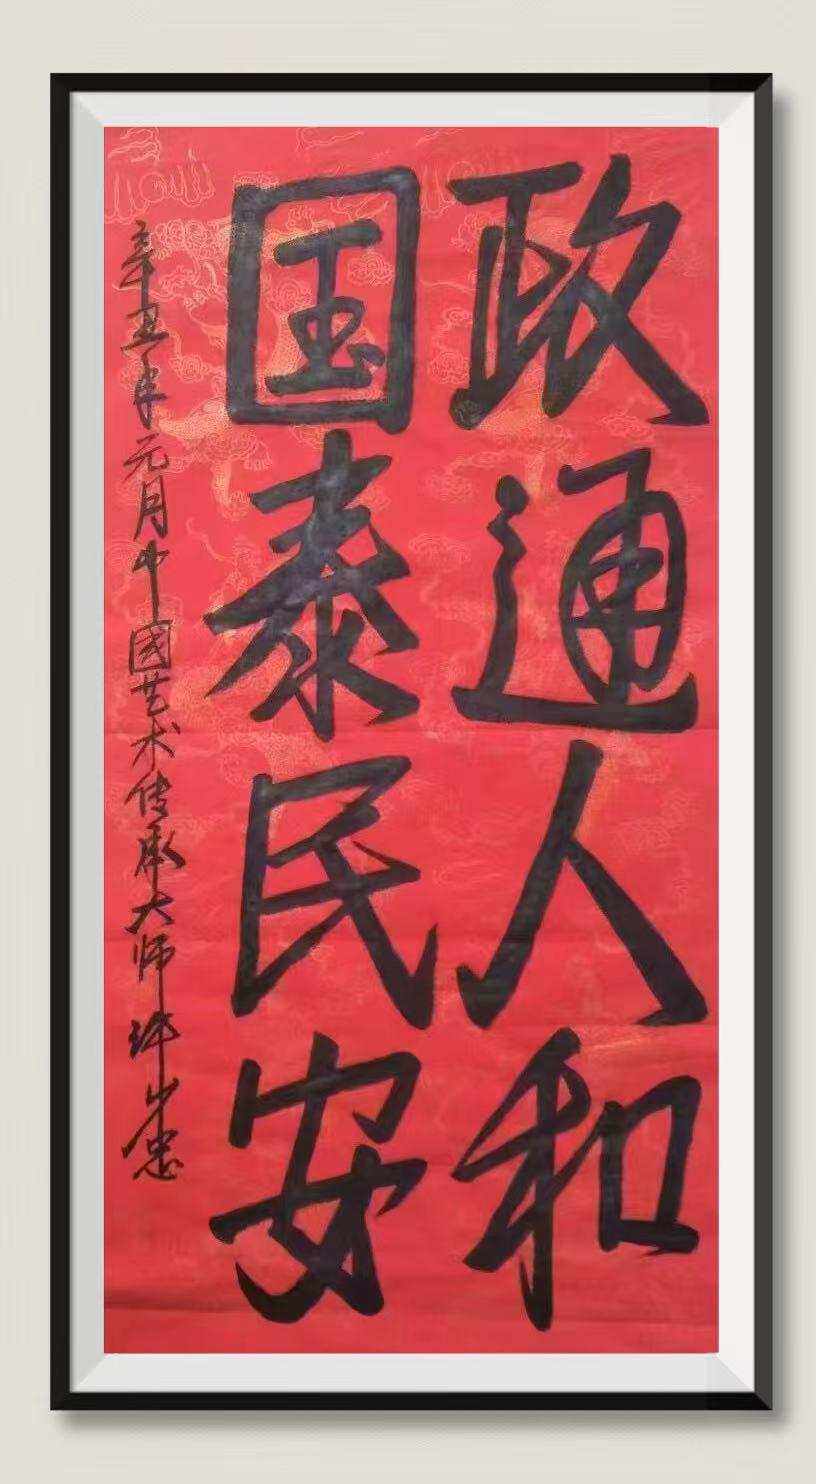 政通人和
国泰民安
辛丑年元月中國艺术传承大师许少忠